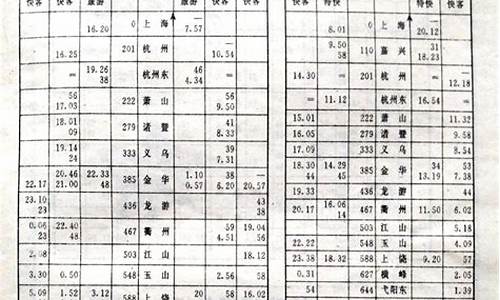 快客 快客 旅游 旅游 快客 快客
16.20 0 上海 —
7.57
16.25 201 杭州 —
10.54
= 19.26 杭州东 46 =
38 4.34
56 222 萧山 56
17.03 9.50
18.01 279 诸暨 41
09 8.33
19.14 333 义乌 39
24 7.31
20.46 22.33 385 金华 1.10 38
22.17 21.00 48 0.57 6.20 20.57
23.10 436 龙游 43
23 38
0.06 22.40 467 衢州 59 19.04
23 48 4.51 56
2.08 503 江山 18.12
3.30 0.50 548 玉山 2.56 58
5.09 1.52 3.12 588 上饶 20 58 16.02
快客 特快 特快 快客
8.01 0 上海 —
20.12
9.50 110 嘉兴 31
58 18.23
14.30 = 201 杭州 = —
12.18
= 11.12 杭州东 16.54 =
15.01 222 萧山 11.32
17.00 279 诸暨 9.58
17.09 333 义乌 8.54
18.30 14.29 385 金华 34 53
44 45 13.19 7.38
19.33 436 龙游 44
20.17 16.06 467 衢州 11.50 6.02
14
503 江山 5.18
22.22 548 玉山 4.09
23.38 18.32 588 上饶 9.20 57
0.31 627 横峰 2.05
54 644 弋阳东 1.39